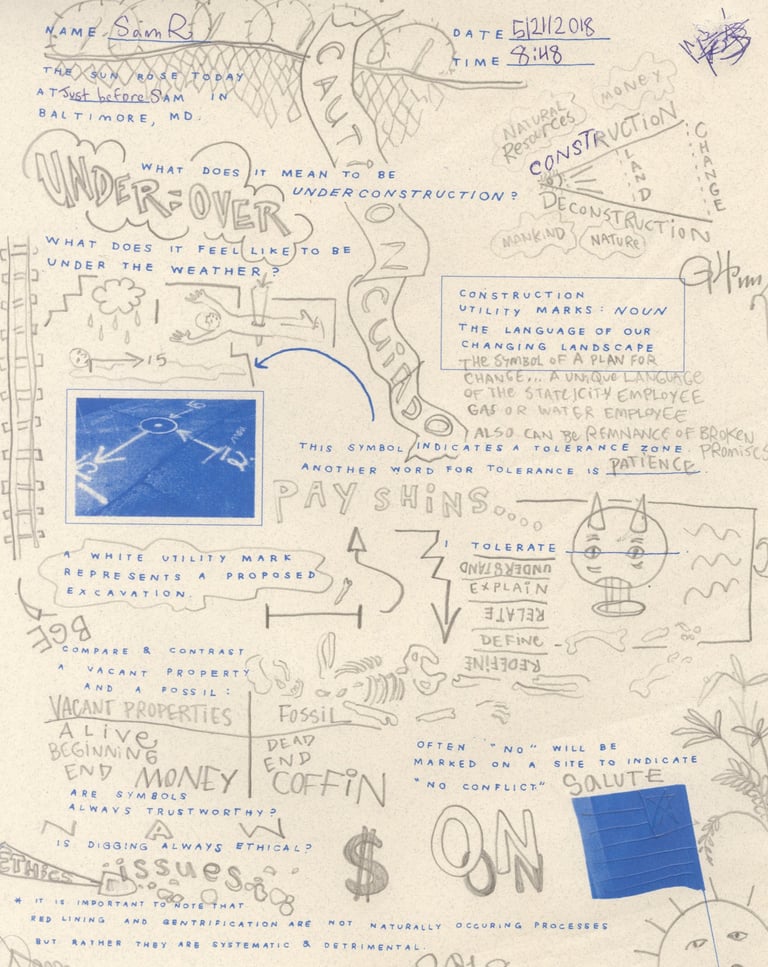 NAME SamR
DATE 5/21/2018
TIME 8:48
THE SUN ROSE TODAY
AT Just before 5AM IN
BALTIMORE, MD.
CAUT
ION
CUiDADO
NATURAL
Resources
MONEY
CONSTRUCTION
LAND
CHANGE
DECONSTRUCTION
MANKIND
NATURE
UNDER-OVER
WHAT DOES IT MEAN TO BE
UNDER CONSTRUCTION?
WHAT DOES IT FEEL LIKE TO BE
UNDER THE WEATHER?
15
CONSTRUCTION
UTILITY MARKS: NOUN
THE LANGUAGE OF OUR
CHANGING LANDSCAPE
THE SYMBOL OF A PLAN FOR
CHANGE... A UNIQUE LANGUAGE
OF THE STATE/CITY EMPLOYEE
GAS OR WATER EMPLOYEE
ALSO CAN BE REMNANCE OF BROKEN
PROMISES
THIS SYMBOL INDICATES A TOLERANCE ZONE.
ANOTHER WORD FOR TOLERANCE IS PATIENCE.
PAY SHiNS....
A WHITE UTILITY MARK
REPRESENTS A PROPOSED
EXCAVATION.
BGE
I TOLERATE
UNDERSTAND
EXPLAIN
RELATE
DEFINE
REDEFINE
COMPARE & CONTRAST
A VACANT PROPERTY
AND A FOSSIL:
VACANT PROPERTIES
ALive
BEGINNING
END MONEY
FOSSIL
DEAD
END
COFFiN
OFTEN "NO" WILL BE
MARKED ON A SITE TO INDICATE
"NO CONFLICT."
SALUTE
ARE SYMBOLS
ALWAYS TRUSTWORTHY?
NAW
IS DIGGING ALWAYS ETHICAL?
ETHICS
issues
$
ON
* IT IS IMPORTANT TO NOTE THAT
RED LINING AND GENTRIFICATION ARE NOT NATURALLY OCCURING PROCESSES
BUT RATHER THEY ARE SYSTEMATIC & DETRIMENTAL.